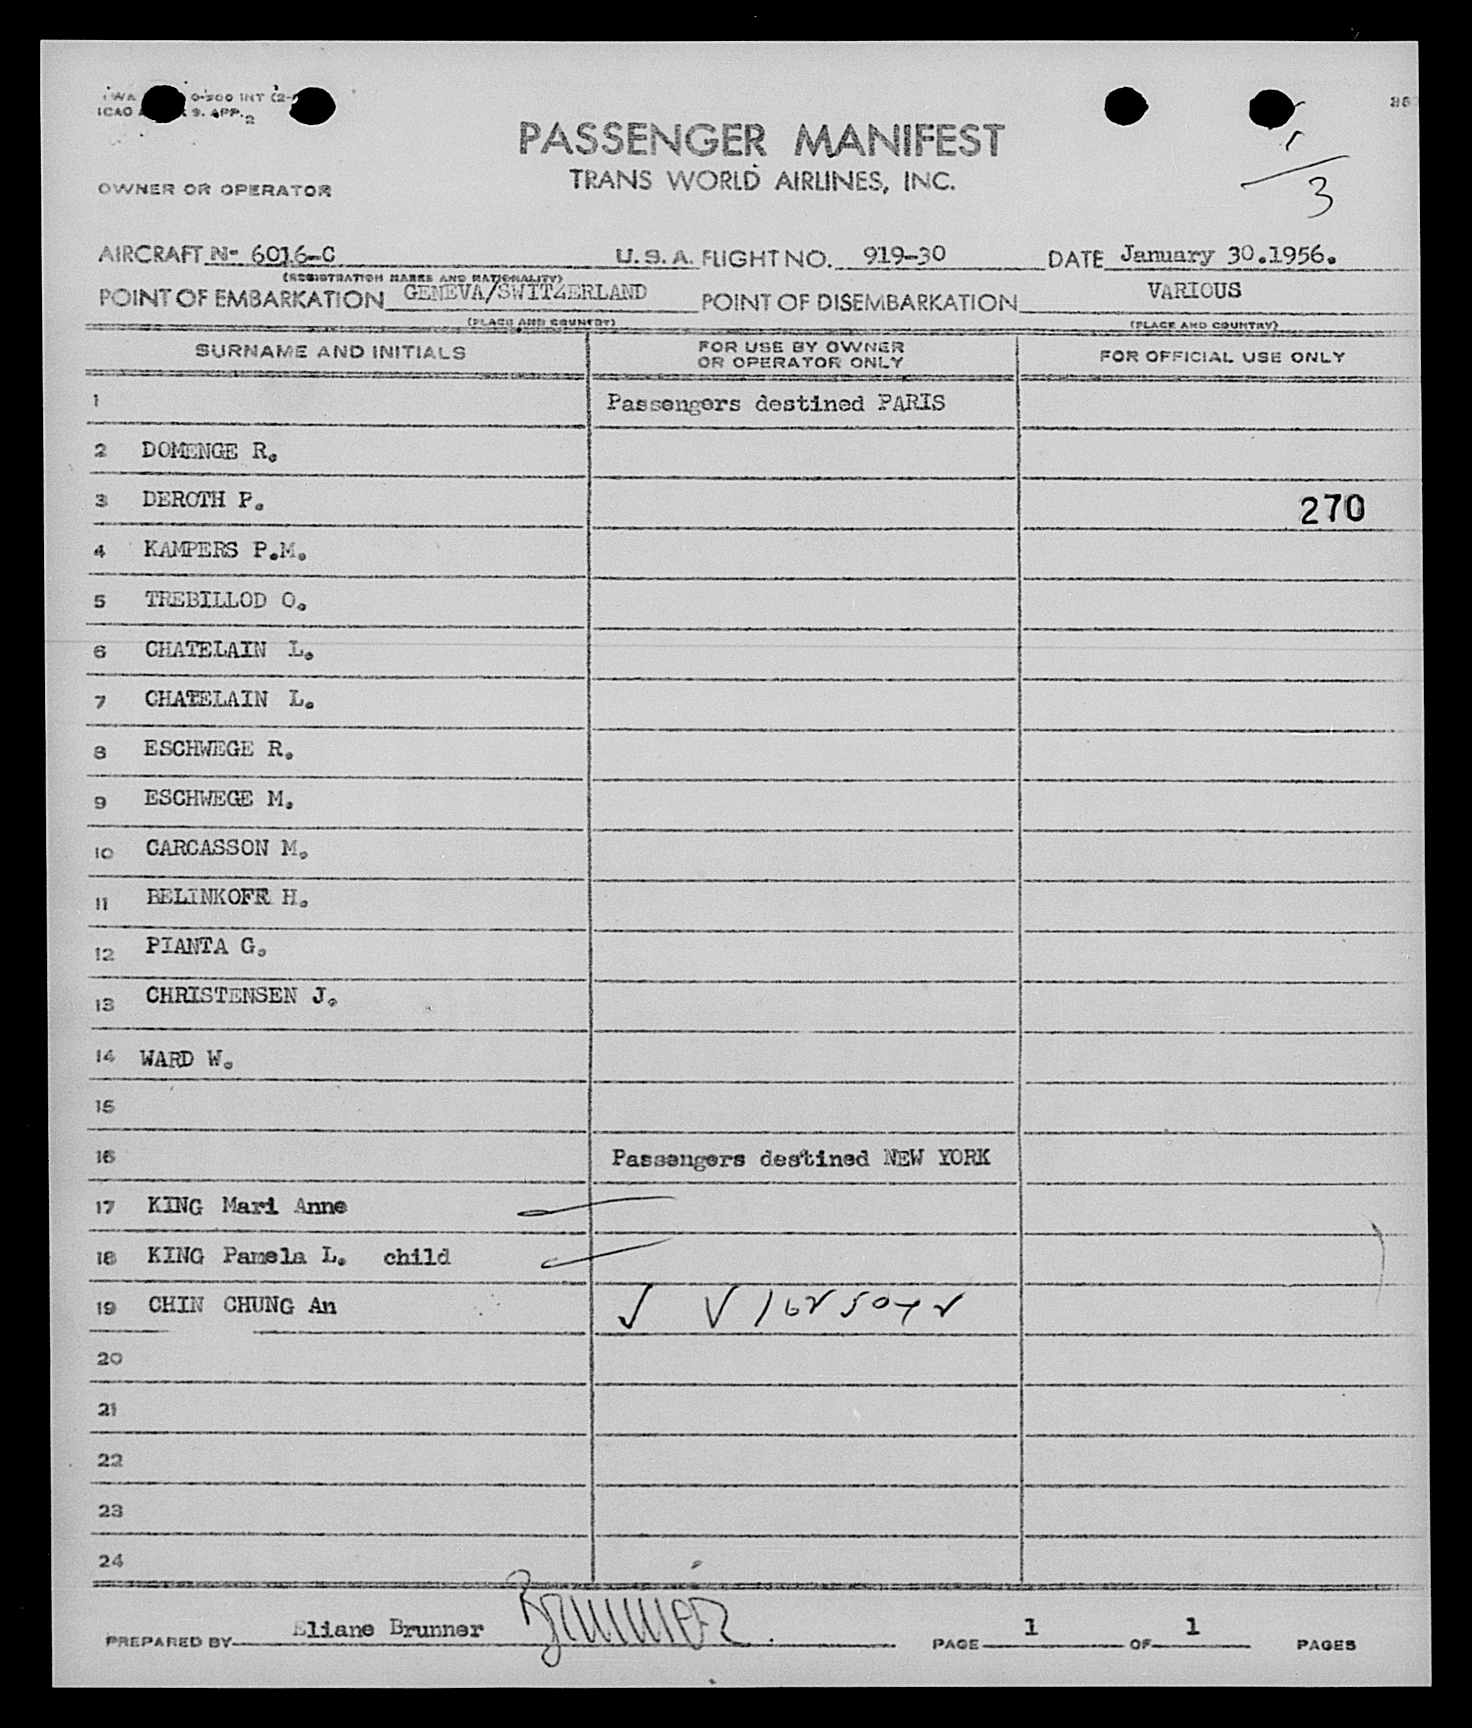 ICAO 9. APP. 2
PASSENGER MANIFEST
TRANS WORLD AIRLINES, INC.
3
OWNER OR OPERATOR
AIRCRAFT N- 6016-C U.S.A. FLIGHT NO. 919-30 DATE January 30.1956.
(REGISTRATION MARKS AND NATIONALITY)
POINT OF EMBARKATION GENEVA/SWITZERLAND POINT OF DISEMBARKATION VARIOUS
(PLACE AND COUNTRY) (PLACE AND COUNTRY)
SURNAME AND INITIALS FOR USE BY OWNER OR OPERATOR ONLY FOR OFFICIAL USE ONLY
1 Passengers destined PARIS
2 DOMENGE R.
3 DEROTH P. 270
4 KAMPERS P.M.
5 TREBILLOD O.
6 CHATELAIN L.
7 CHATELAIN L.
8 ESCHWEGE R.
9 ESCHWEGE M.
10 CARCASSON M.
11 BELINKOFF H.
12 PIANTA G.
13 CHRISTENSEN J.
14 WARD W.
15
16 Passengers destined NEW YORK
17 KING Mari Anne
18 KING Pamela L. child
19 CHIN CHUNG An
20
21
22
23
24
PREPARED BY Eliane Brunner Brunner PAGE 1 OF 1 PAGES